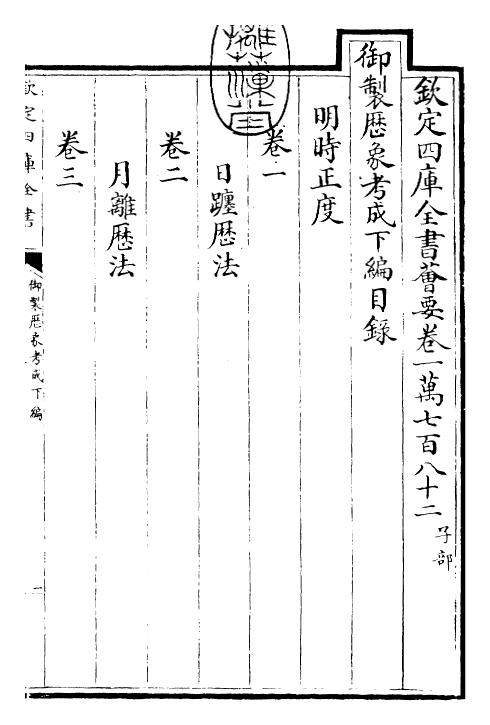 欽定四庫全書薈要卷一萬七百八十二 子部
御製厯象考成下編目録
明時正度
卷一
日躔厯法
卷二
月離厯法
卷三
欽定四庫全書
御製厯象考成下編
一